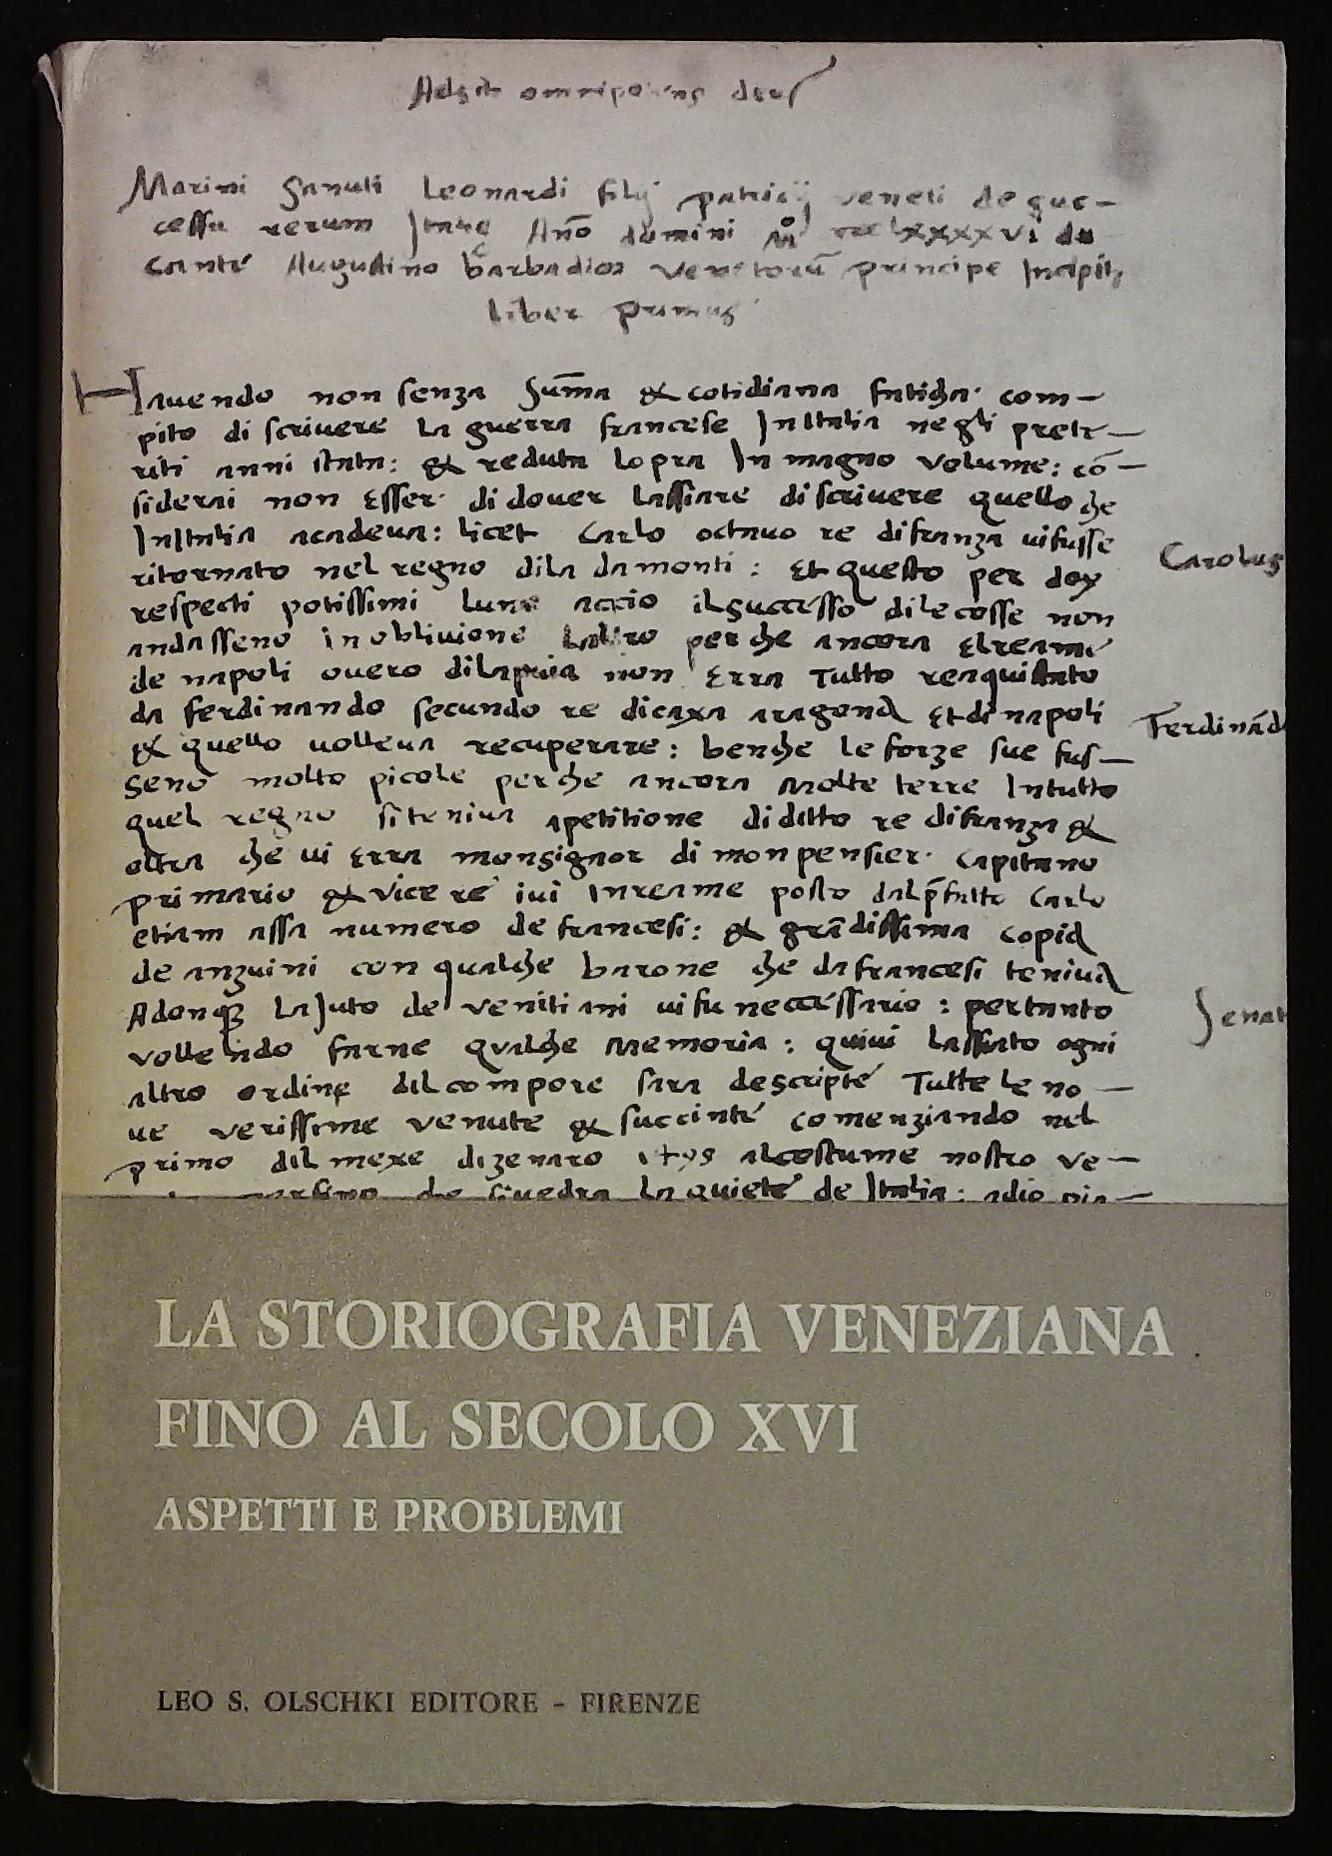 Adsit omnipotens deus
Marini Sanuti Leonardi filij patricij veneti de suc-
cessu rerum Italie Año domini Mº cccclxxxxvi du
cante Augustino barbadico Venetorū principe Incipit
liber primus
Havendo non senza sum̄a & cotidiana faticha com-
pito di scrivere la guerra francese In Italia negli prete-
riti anni stata: & reduta lopra In magno volume: cō-
siderai non esser di dover lassare di scrivere quello che
In Italia acadeva: licet Carlo octavo re di franza vi fusse
ritornato nel regno di la da monti: Et questo per doy
respecti potissimi luno acciò il successo di le cosse non
andasseno in oblivione laltro perche ancora el reame
de napoli overo di la puia non erra tutto reaquistato
da ferdinando secundo re di caxa aragona Et di napoli
& quello volleva recuperare: benche le forze sue fus-
seno molto picole perche ancora molte terre In tutto
quel regno si teniva a petitione di ditto re di franza &
oltra che vi erra monsignor di monpensier capitano
primario & vice re ivi In reame posto dal p̄fatto Carlo
etiam assa numero de francesi: & grādissima copia
de anzuini con qualche barone che da francesi teniva
Adonq; lajuto de venitiani vi fu necessario: pertanto
vollendo farne qualche memoria: quivi lassato ogni
altro ordine dil compore sara descripte Tutte le no-
ve verissime venute & succinte comenziando nel
primo dil mexe di zenaro 1495 al costume nostro ve-
che si vedra la quiete de Italia: adio pia-
Carolus
Ferdinād
Senat
LA STORIOGRAFIA VENEZIANA
FINO AL SECOLO XVI
ASPETTI E PROBLEMI
LEO S. OLSCHKI EDITORE - FIRENZE